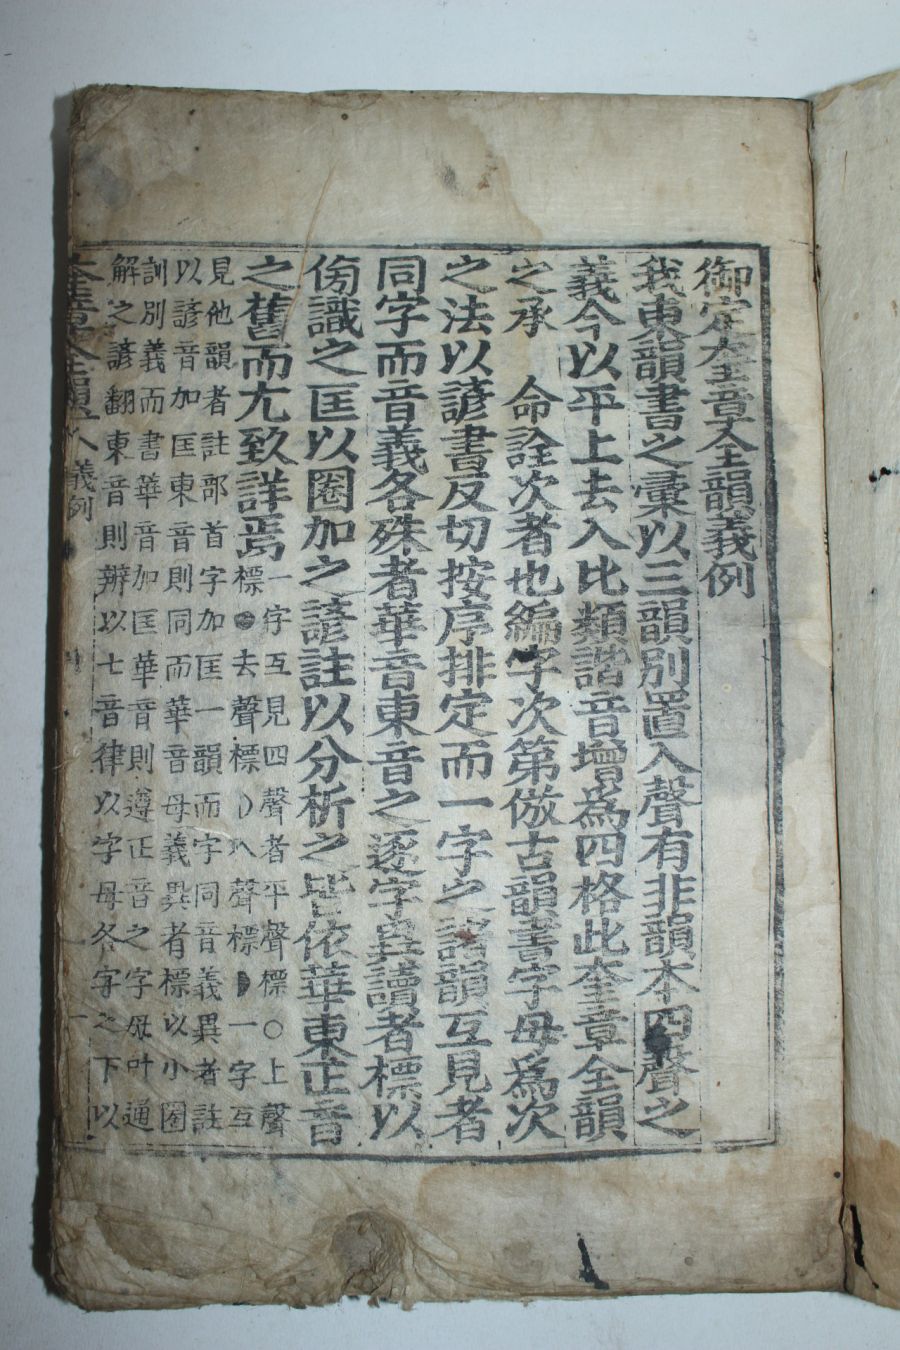 御定奎章全韻義例
我東韻書之彙以三韻別置入聲有非韻本四聲之
義今以平上去入比類諧音增爲四格此奎章全韻
之承　命詮次者也編字次第倣古韻書字母爲次
之法以諺書反切按序排定而一字之諸韻互見者
同字而音義各殊者華音東音之逐字異讀者標以
傍識之匡以圈加之諺註以分析之皆依華東正音
之舊而尤致詳焉
一字互見四聲者平聲標○上聲
標●去聲標)入聲標◗一字互
見他韻者註部首字加匡一韻而字同音義異者註
以諺音加匡東音則同而華音母義異者標以小圈
訓別義而書華音加匡華音則遵正音之字母叶通
解之諺翻東音則辨以七音律以字母各字之下以
奎章全韻 義例 一